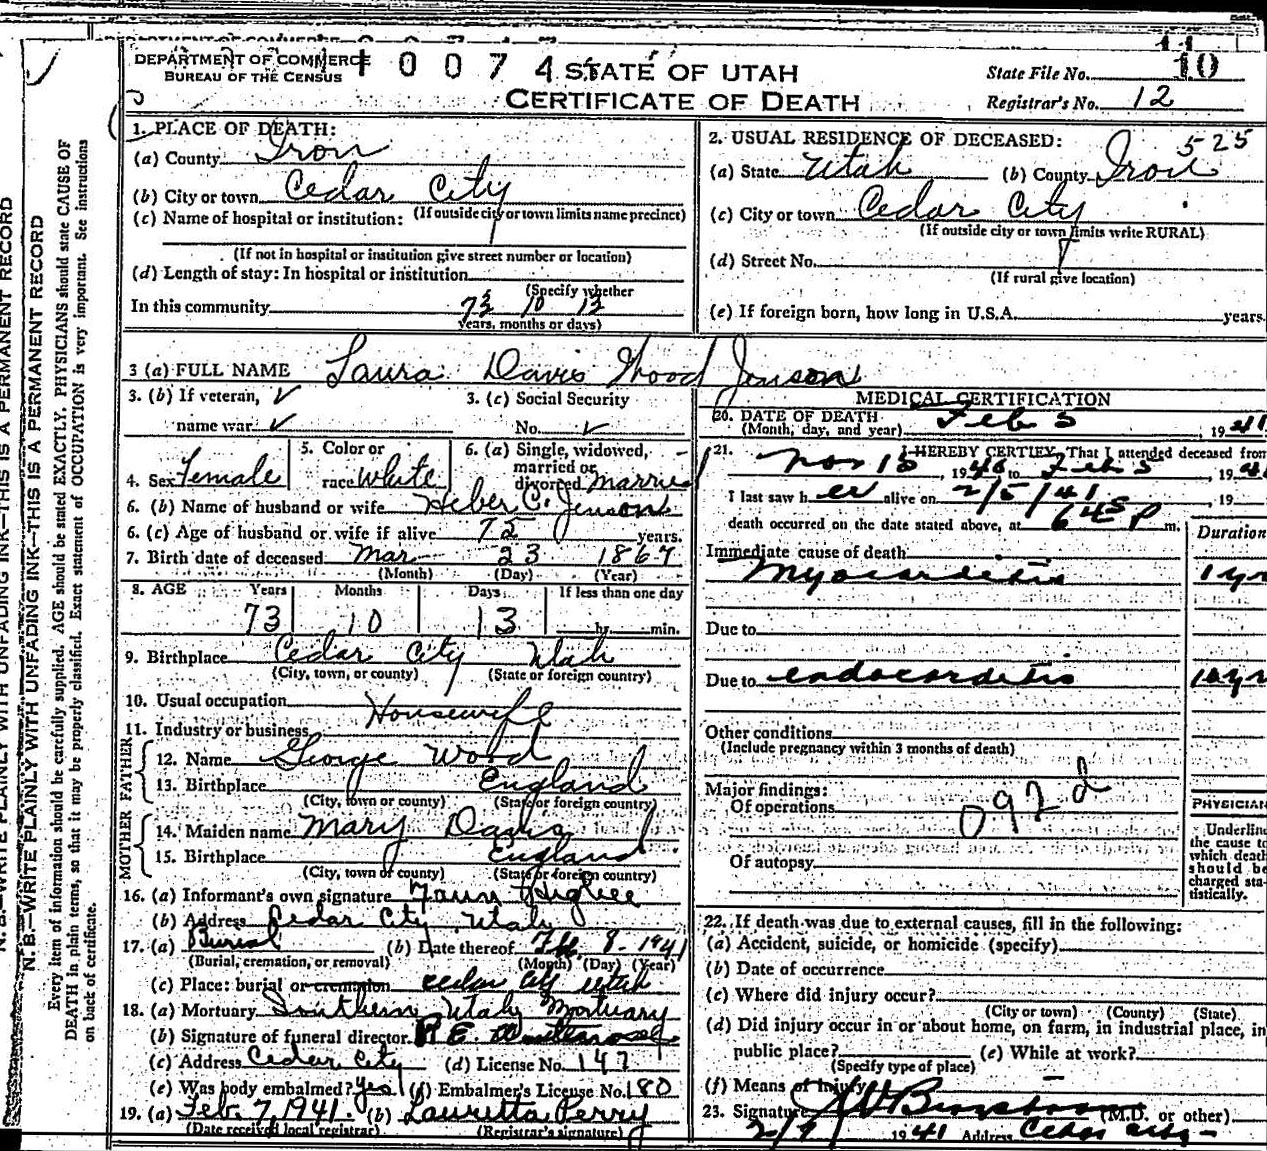 DEPARTMENT OF COMMERCE
BUREAU OF THE CENSUS
0 0 7 4
STATE OF UTAH
CERTIFICATE OF DEATH
State File No. 10
Registrar's No. 12
N. B.—WRITE PLAINLY WITH UNFADING INK—THIS IS A PERMANENT RECORD
N. B.—WRITE PLAINLY WITH UNFADING INK—THIS IS A PERMANENT RECORD
Every item of information should be carefully supplied. AGE should be stated EXACTLY. PHYSICIANS should state CAUSE OF
DEATH in plain terms, so that it may be properly classified. Exact statement of OCCUPATION is very important. See instructions
on back of certificate.
1. PLACE OF DEATH:
(a) County Iron
(b) City or town Cedar City
(If outside city or town limits name precinct)
(c) Name of hospital or institution:
(If not in hospital or institution give street number or location)
(d) Length of stay: In hospital or institution
(Specify whether
In this community 73 10 13
years, months or days)
2. USUAL RESIDENCE OF DECEASED:
525
(a) State Utah (b) County Iron
(c) City or town Cedar City
(If outside city or town limits write RURAL)
(d) Street No.
(If rural give location)
(e) If foreign born, how long in U.S.A. years.
3 (a) FULL NAME Laura Davis Wood Jenson
3. (b) If veteran,
name war
3. (c) Social Security
No.
4. Sex Female
5. Color or
race White
6. (a) Single, widowed,
married or
divorced Married
6. (b) Name of husband or wife Heber C. Jenson
6. (c) Age of husband or wife if alive 75 years.
7. Birth date of deceased Mar 23 1867
(Month) (Day) (Year)
8. AGE Years Months Days If less than one day
73 10 13 hr. min.
9. Birthplace Cedar City Utah
(City, town, or county) (State or foreign country)
10. Usual occupation Housewife
11. Industry or business
FATHER
12. Name George Wood
13. Birthplace England
(City, town or county) (State or foreign country)
MOTHER
14. Maiden name Mary Davis
15. Birthplace England
(City, town or county) (State or foreign country)
16. (a) Informant's own signature Higbee
(b) Address Cedar City, Utah
17. (a) Burial (b) Date thereof Feb. 8- 1941
(Burial, cremation, or removal) (Month) (Day) (Year)
(c) Place: burial or cremation Cedar City Utah
18. (a) Mortuary Southern Utah Mortuary
(b) Signature of funeral director
(c) Address Cedar City (d) License No. 147
(e) Was body embalmed? yes (f) Embalmer's License No. 180
19. (a) Feb. 7, 1941. (b) Lauretta Perry
(Date received local registrar) (Registrar's signature)
MEDICAL CERTIFICATION
20. DATE OF DEATH
(Month, day, and year) Feb 5, 1941
21. I HEREBY CERTIFY, That I attended deceased from
Nov 15, 1940 to Feb 5, 19
I last saw her alive on 2/5/41, 19
death occurred on the date stated above, at 6 45 P m.
Duration
Immediate cause of death
Myocarditis 1 yr
Due to
Due to endocarditis 10 yr
Other conditions
(Include pregnancy within 3 months of death)
Major findings:
Of operations
092 d
Of autopsy
PHYSICIAN
Underline
the cause to
which death
should be
charged sta-
tistically.
22. If death was due to external causes, fill in the following:
(a) Accident, suicide, or homicide (specify)
(b) Date of occurrence
(c) Where did injury occur?
(City or town) (County) (State)
(d) Did injury occur in or about home, on farm, in industrial place, in
public place? (e) While at work?
(Specify type of place)
(f) Means of Injury
23. Signature (M.D. or other)
1941 Address Cedar City